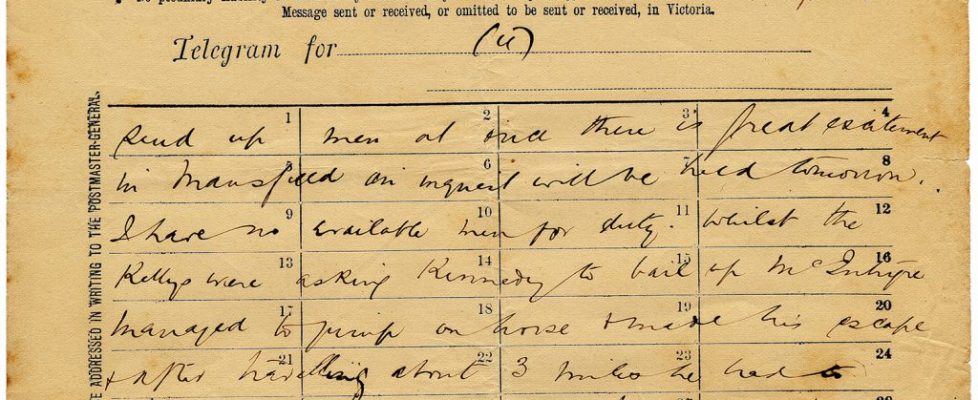 Message sent or received, or omitted to be sent or received, in Victoria.
Telegram for (u)
ADDRESSED IN WRITING TO THE POSTMASTER-GENERAL.
1 2 3 4
send up men at once there is great excitement
5 6 7 8
in Mansfield an inquest will be held tomorrow.
9 10 11 12
I have no available men for duty. Whilst the
13 14 15 16
Kellys were asking Kennedy to bail up McIntyre
17 18 19 20
managed to jump on horse & made his escape
21 22 23 24
& after travelling about 3 miles he had to